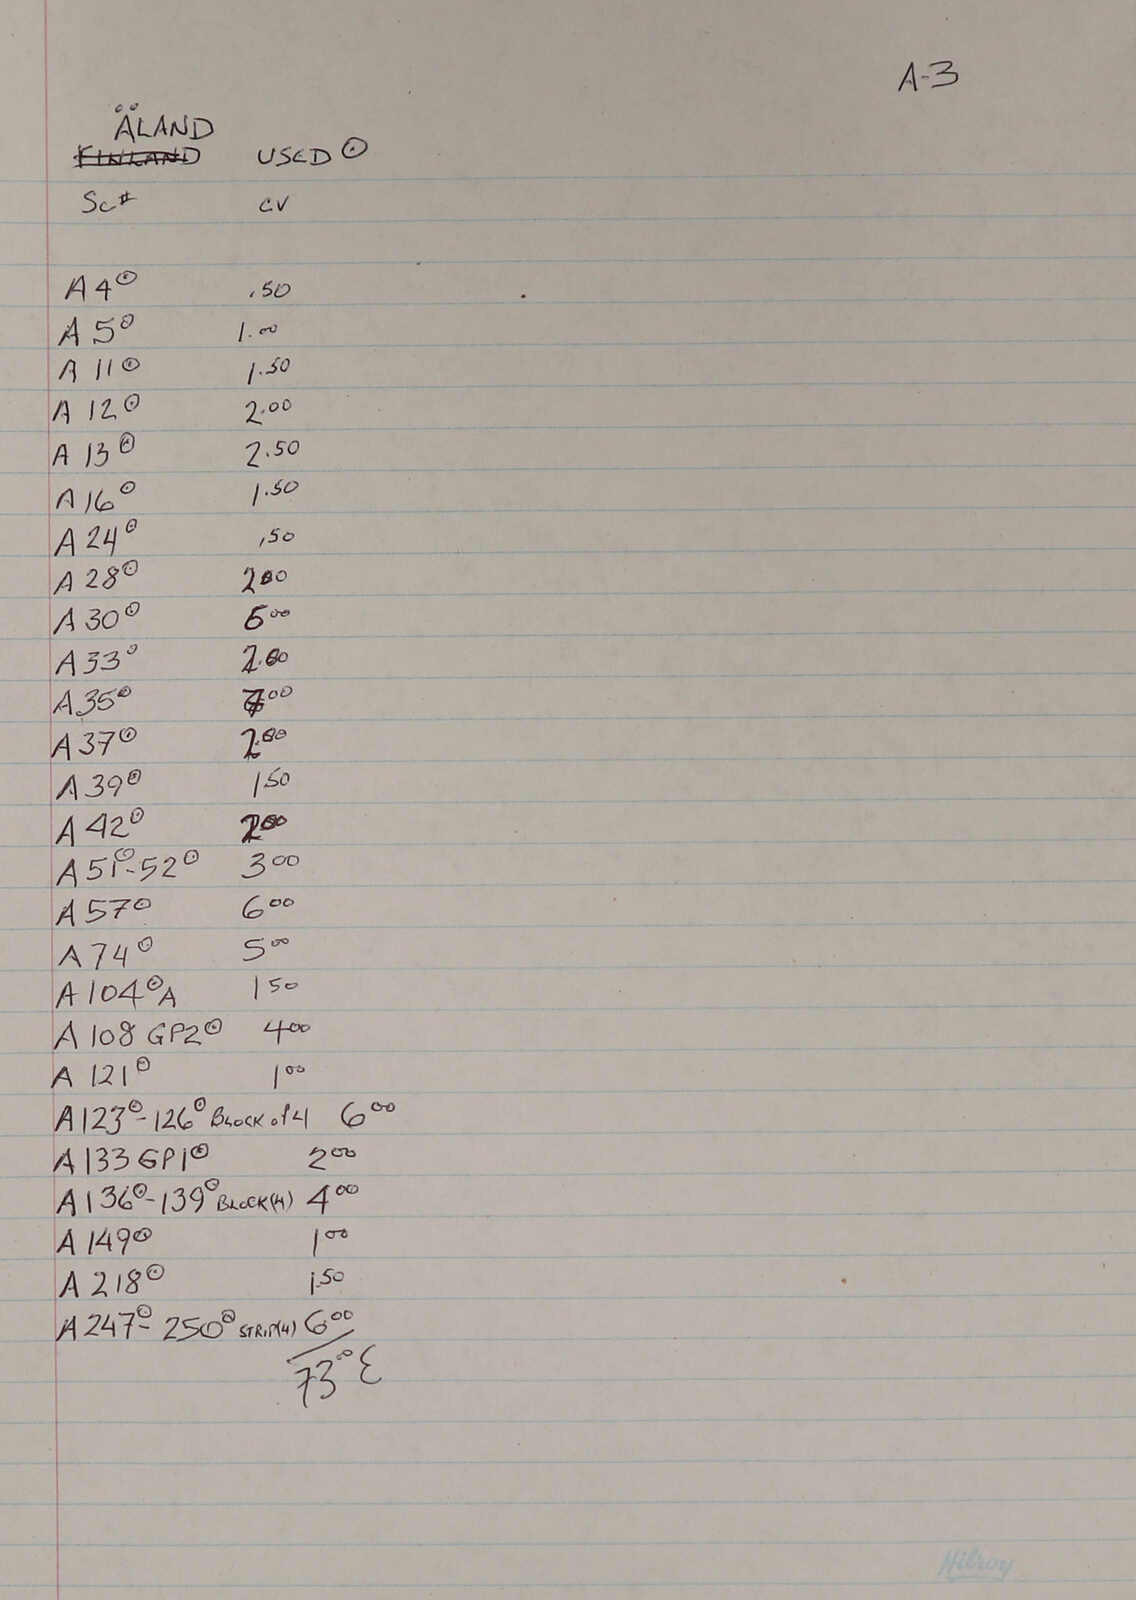 A-3
ÄLAND
FINLAND USED ⊙
Sc# CV
A 4⊙ .50
A 5⊙ 1.00
A 11⊙ 1.50
A 12⊙ 2.00
A 13⊙ 2.50
A 16⊙ 1.50
A 24⊙ .50
A 28⊙ 2.00
A 30⊙ 6.00
A 33⊙ 2.00
A 35⊙ 7.00
A 37⊙ 2.00
A 39⊙ 1.50
A 42⊙ 2.00
A 51⊙-52⊙ 3.00
A 57⊙ 6.00
A 74⊙ 5.00
A 104⊙A 1.50
A 108 GP2⊙ 4.00
A 121⊙ 1.00
A 123⊙-126⊙ BLOCK of 4 6.00
A 133 GP1⊙ 2.00
A 136⊙-139⊙ BLOCK(4) 4.00
A 149⊙ 1.00
A 218⊙ 1.50
A 247⊙-250⊙ STRIP(4) 6.00
73.00 €
Hilroy